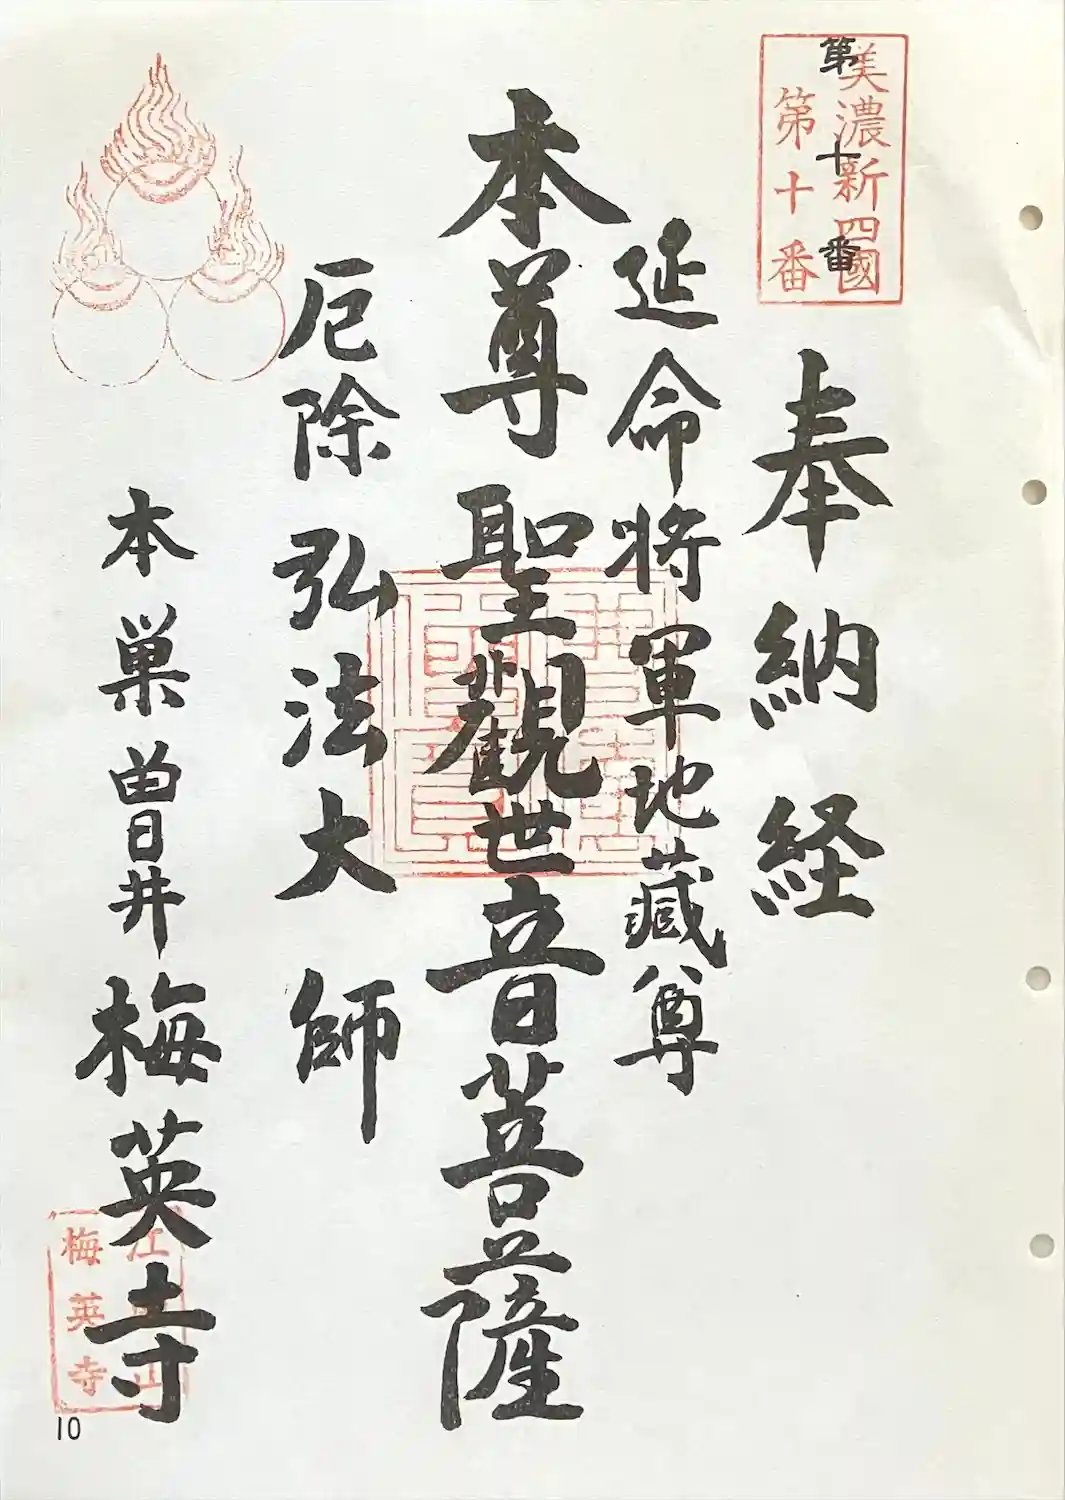 美濃新四國
第十番
第十番
奉納経
延命将軍地蔵尊
本尊 聖觀世音菩薩
厄除 弘法大師
本巣 曽井 梅英寺
梅英寺
10